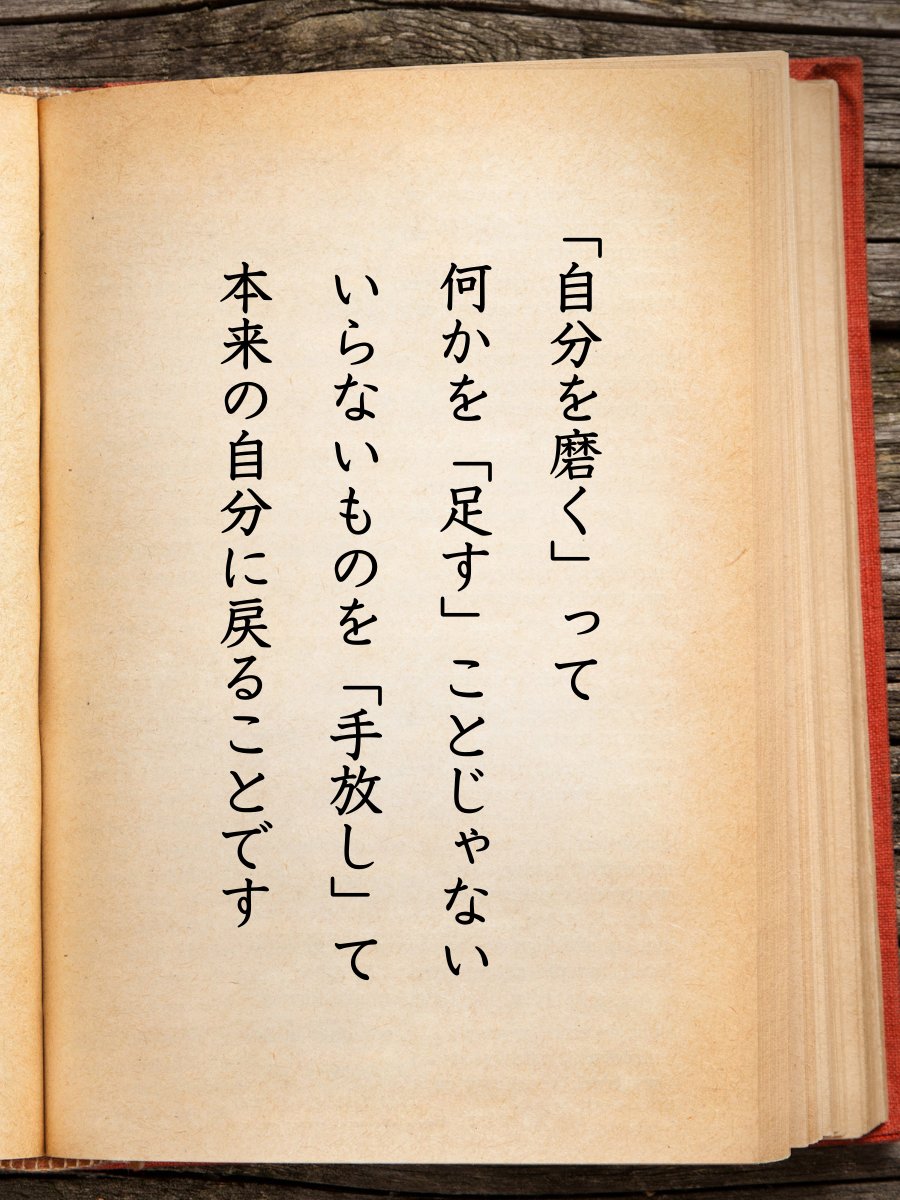 「自分を磨く」って
何かを「足す」ことじゃない
いらないものを「手放し」て
本来の自分に戻ることです